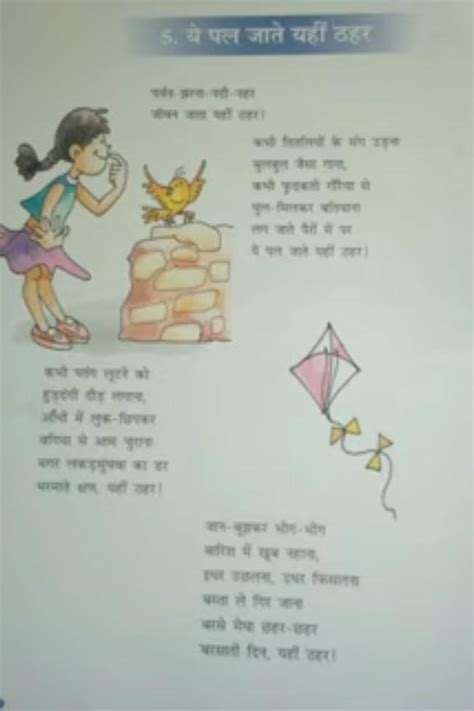 5. ये पल जाते यहीं ठहर
पर्वत-झरना-नदी-नहर
जीवन जाता यहीं ठहर!
कभी तितलियों के संग उड़ना
बुलबुल जैसा गाना,
कभी फुदकती गौरैया से
घुल-मिलकर बतियाना
लग जाते पैरों में पर
ये पल जाते यहीं ठहर!
कभी पतंग लूटने को
हुड़दंगी दौड़ लगाना,
आँधी में लुक-छिपकर
बगिया से आम चुराना
मगर लकड़सुंघवा का डर
भरमाते क्षण, यहीं ठहर!
जान-बूझकर भीग-भीग
बारिश में खूब नहाना,
इधर उछलना, उधर फिसलना
बस्ता ले गिर जाना
बरसे मेघा छहर-छहर
बरसाती दिन, यहीं ठहर!